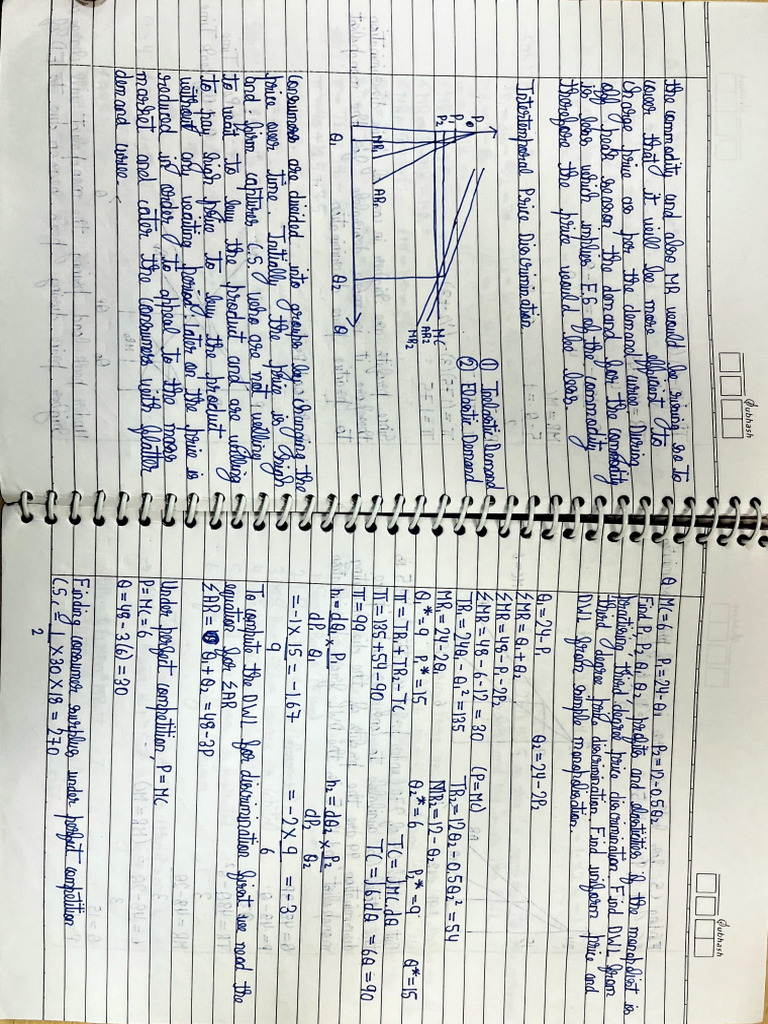 Subhash
the commodity and also MR would be rising so to
cover that it will be more efficient to
charge price as per the demand curve. During
off peak season the demand for the commodity
is less which implies E.S of the commodity
therefore the price would be less.
Intertemporal Price Discrimination.
① Inelastic Demand
② Elastic Demand
P₀
P₁
P₂
MC
AR₂
MR₂
AR₁
MR₁
Q₁
Q₂
Q
Consumers are divided into groups by changing the
price over time. Initially the price is high
and firm captures C.S. who are not willing
to wait to buy the product and are willing
to pay high price to buy the product
without any waiting period, later on the price is
reduced in order to appeal to the mass
market and cater the consumers with flatter
demand curve.
Subhash
Q MC=6. P₁=24-Q₁ P₂=12-0.5Q₂
Find P₁ P₂ Q₁ Q₂, profits and elasticities if the monopolist is
practising third degree price discrimination. Find DWL from
third degree price discrimination. Find uniform price and
DWL from simple monopolisation.
Q₁=24-P₁ Q₂=24-2P₂
ΣMR=Q₁+Q₂
ΣMR=48-P₁-2P₂
ΣMR=48-6-12=30 (P=MC)
TR₁=24Q₁-Q₁²=135 TR₂=12Q₂-0.5Q₂²=54
MR₁=24-2Q₁ MR₂=12-Q₂
Q₁*=9 P₁*=15 Q₂*=6 P₂*=9 Q*=15
Π=TR₁+TR₂-TC TC=∫MC.dQ
Π=135+54-90 TC=∫6.dQ =6Q=90
Π=99
η₁=dQ₁ × P₁ η₂=dQ₂ × P₂
dP₁ Q₁ dP₂ Q₂
=-1×15=-1.67 =-2×9=-3
9 6
To compute the DWL for discrimination first we need the
equation for ΣAR
ΣAR=Q₁+Q₂=48-3P
Under perfect competition, P=MC
P=MC=6
Q=48-3(6)=30
Finding consumer surplus under perfect competition
CSc=1×30×18=270
2